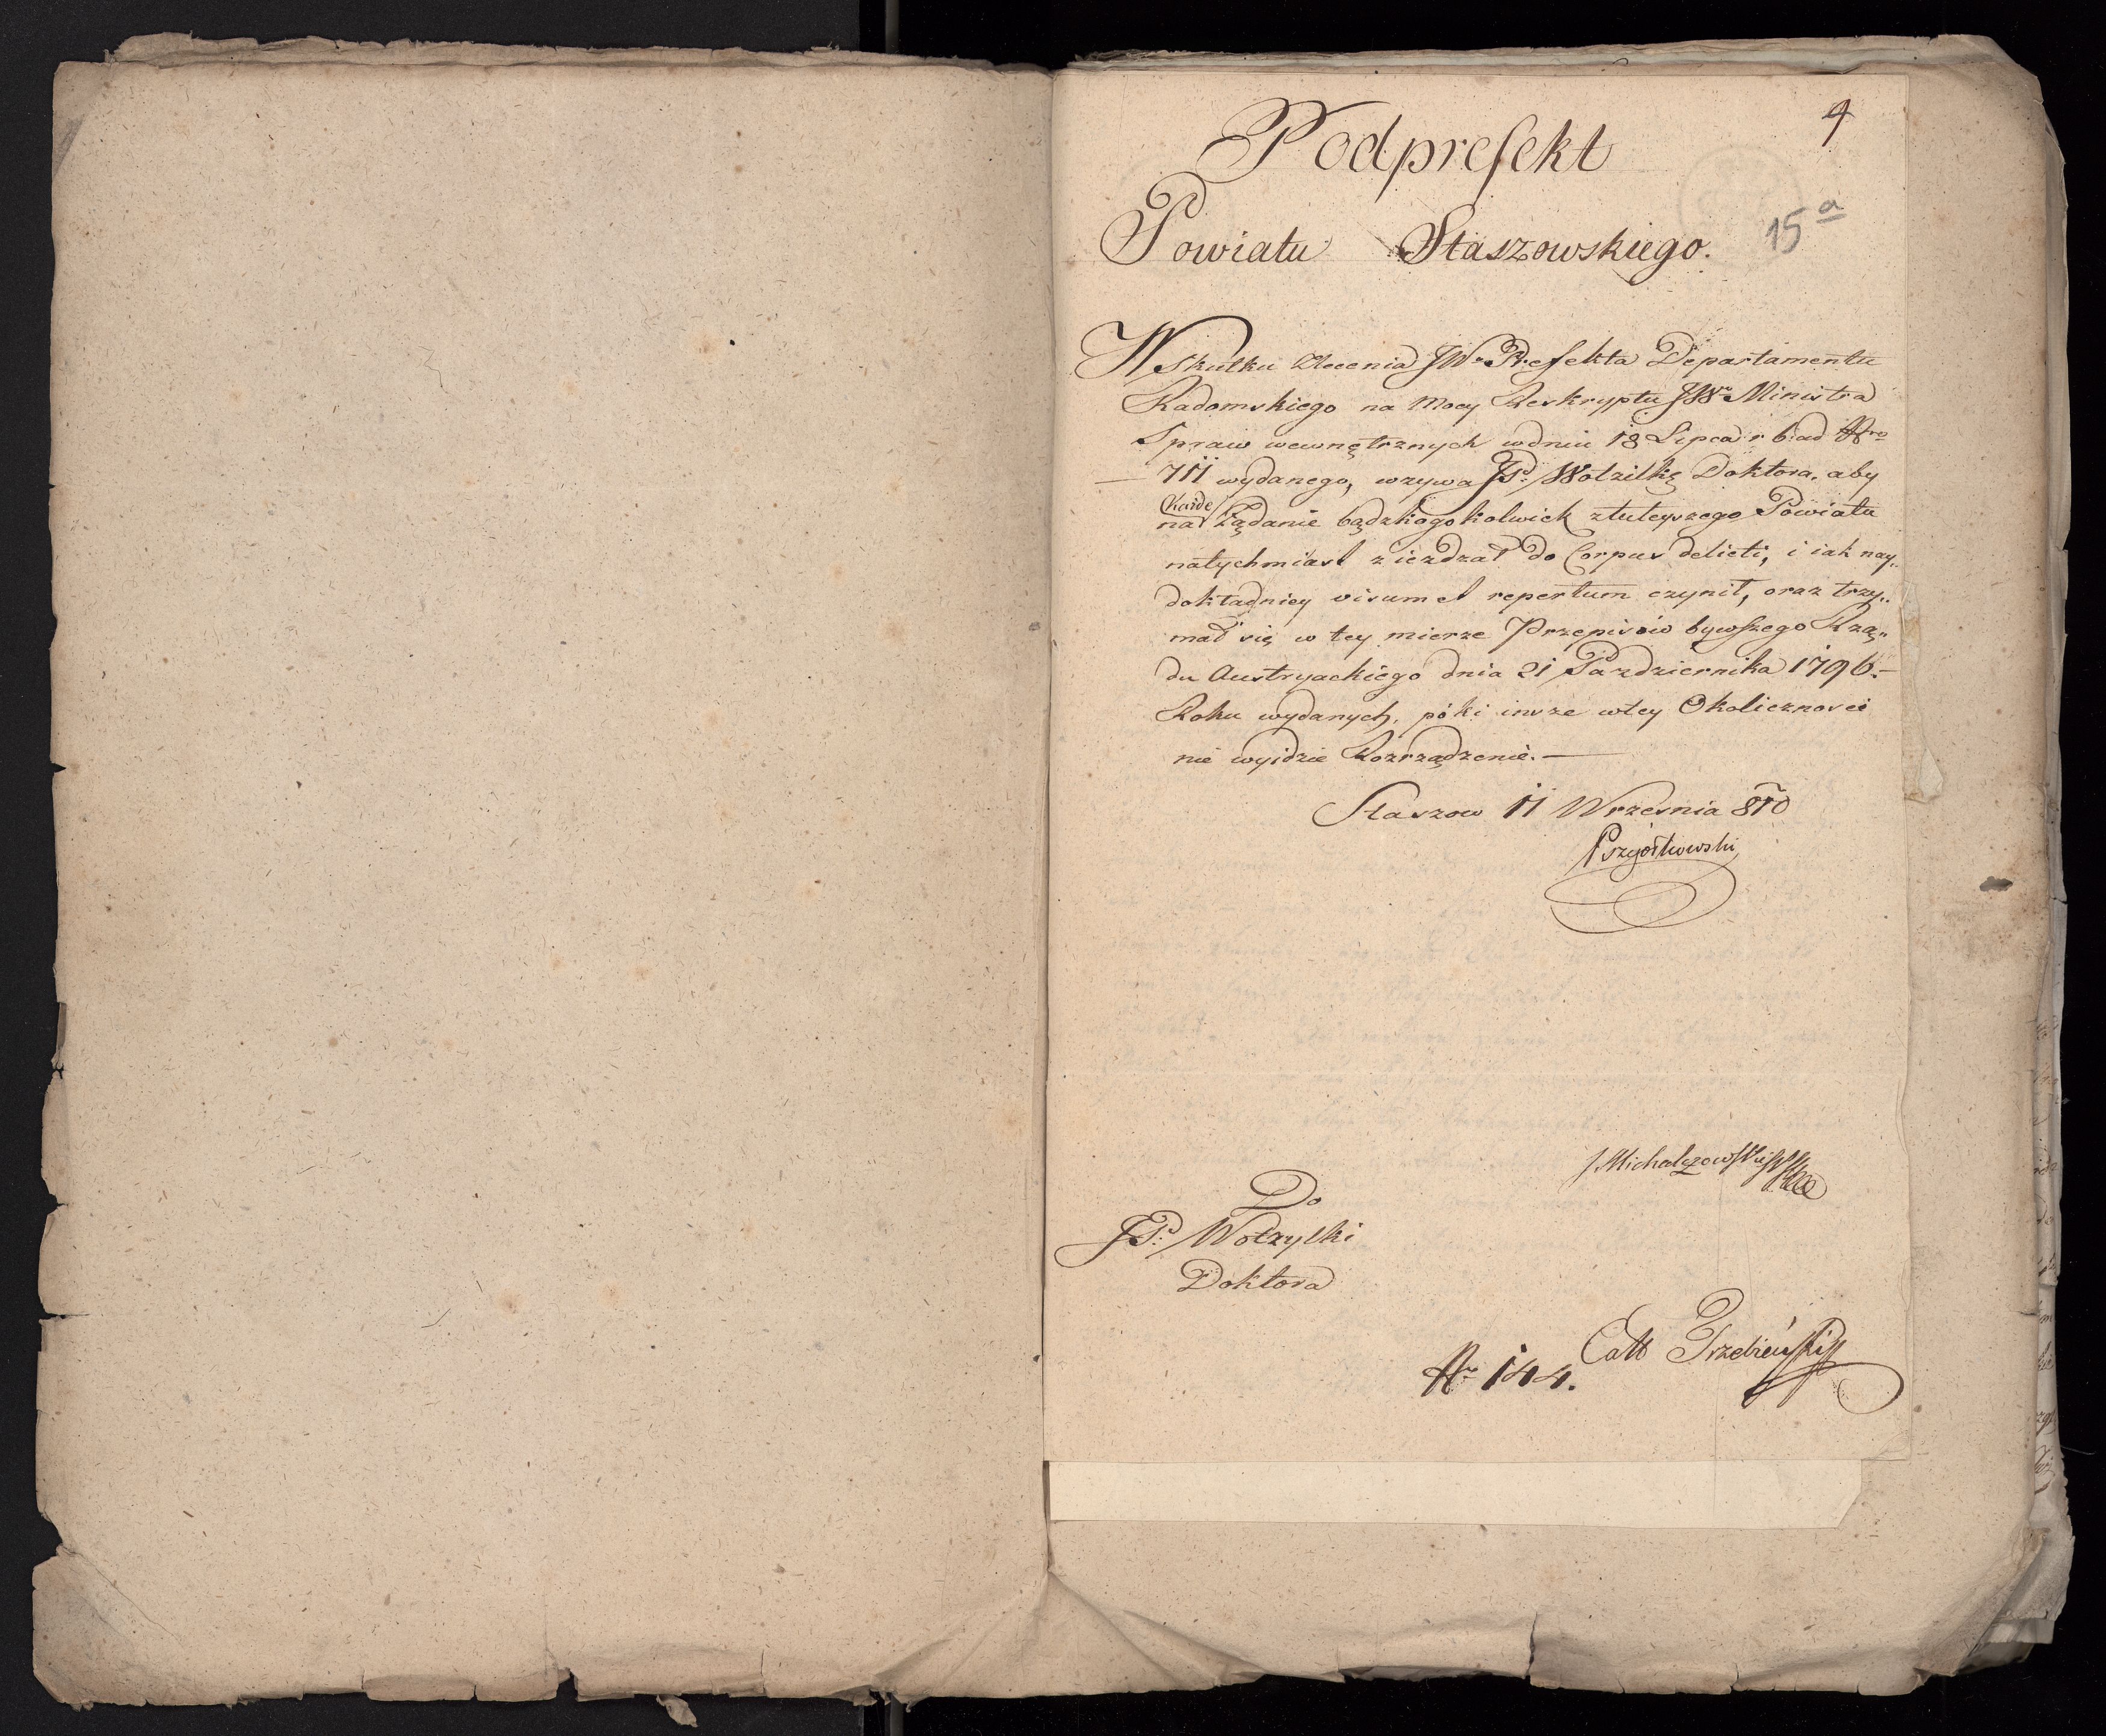 4
Podprefekt
15 a
Powiatu Staszowskiego.
W Skutku Zlecenia JWo Prefekta Departamentu
Radomskiego na Mocy Reskryptu JWo Ministra
Spraw wewnętrznych wdniu 18 Lipca r b. ad Nro
711 wydanego, wzywa JP: Wotzilkę Doktora, aby
Każde
na Żądanie bądzkogokolwiek ztuteyszego Powiatu
natychmiast ziezdzał do Corpus delicti, i iak nay„
dokładniey visum et repertum czynił, oraz trzy„
mał się w tey mierze Przepisów bywszego Rzą„
du Austryackiego dnia 21 Pazdziernika 1796.
Roku wydanych, póki insze wtey Okoliczności
nie wyidzie Rozrządzenie.
Staszow 11 Września 810
Przyółkowski
J. Michalczowski
Do
JP: Wotzylki
Doktora
Trzebiński
Nr 144.